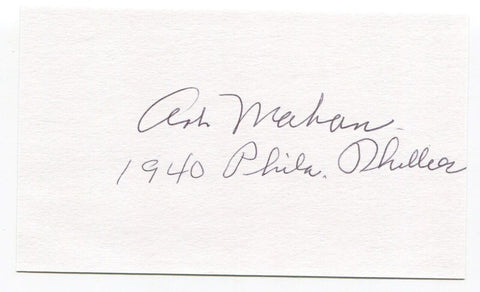 Art Mahan
1940 Phila. Phillies